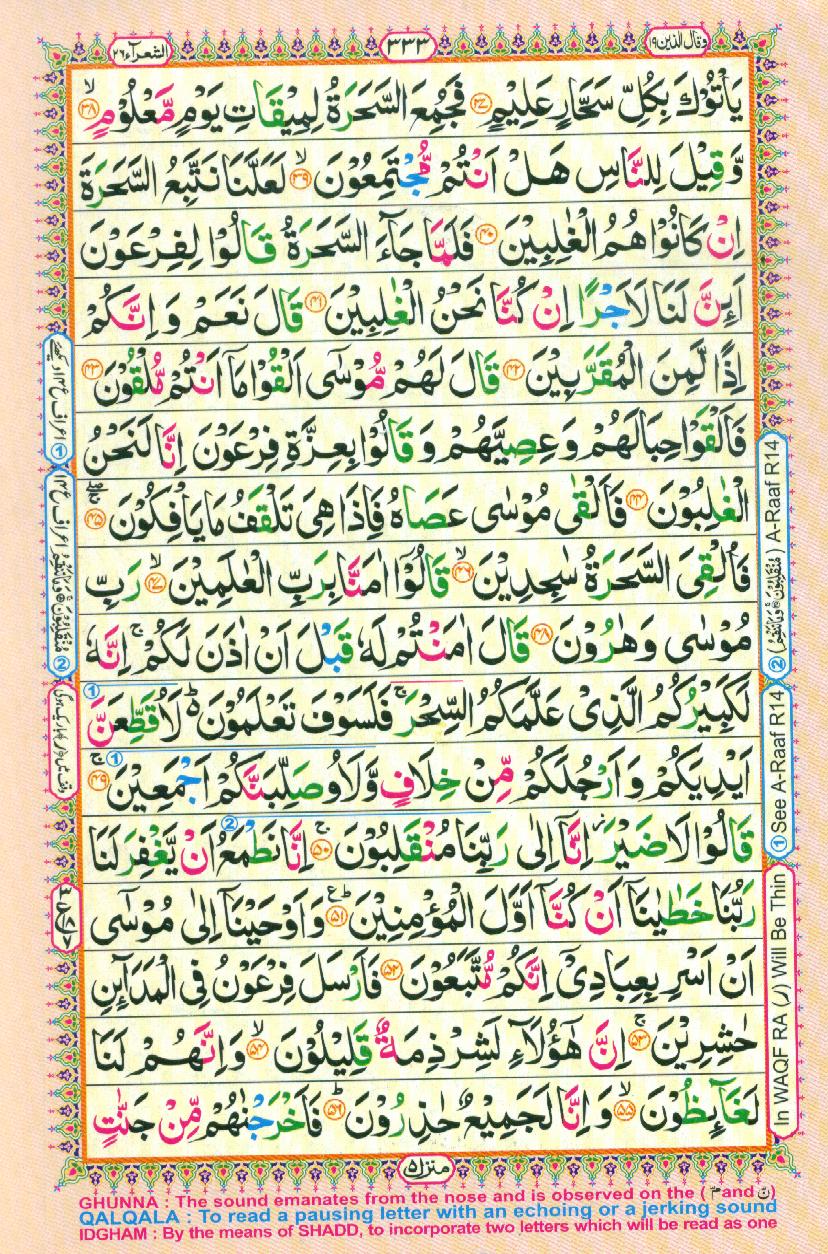 وقال الذين ١٩
٣٣٣
الشعرآء ٢٦
يَاْتُوْكَ بِكُلِّ سَحَّارٍ عَلِيْمٍ ﴿۳۷﴾ فَجُمِعَ السَّحَرَةُ لِمِيْقَاتِ يَوْمٍ مَّعْلُوْمٍ ﴿۳۸﴾ۙ
وَّقِيْلَ لِلنَّاسِ هَلْ اَنْتُمْ مُّجْتَمِعُوْنَ ﴿۳۹﴾ۙ لَعَلَّنَا نَتَّبِعُ السَّحَرَةَ
اِنْ كَانُوْا هُمُ الْغٰلِبِيْنَ ﴿۴۰﴾ فَلَمَّا جَآءَ السَّحَرَةُ قَالُوْا لِفِرْعَوْنَ
اَئِنَّ لَنَا لَاَجْرًا اِنْ كُنَّا نَحْنُ الْغٰلِبِيْنَ ﴿۴۱﴾ قَالَ نَعَمْ وَاِنَّكُمْ
اِذًا لَّمِنَ الْمُقَرَّبِيْنَ ﴿۴۲﴾ قَالَ لَهُمْ مُّوْسٰٓى اَلْقُوْا مَاۤ اَنْتُمْ مُّلْقُوْنَ ﴿۴۳﴾
فَاَلْقَوْا حِبَالَهُمْ وَعِصِيَّهُمْ وَقَالُوْا بِعِزَّةِ فِرْعَوْنَ اِنَّا لَنَحْنُ
الْغٰلِبُوْنَ ﴿۴۴﴾ فَاَلْقٰى مُوْسٰى عَصَاهُ فَاِذَا هِيَ تَلْقَفُ مَا يَاْفِكُوْنَ ﴿۴۵﴾
فَاُلْقِيَ السَّحَرَةُ سٰجِدِيْنَ ﴿۴۶﴾ۙ قَالُوْٓا اٰمَنَّا بِرَبِّ الْعٰلَمِيْنَ ﴿۴۷﴾ۙ رَبِّ
مُوْسٰى وَهٰرُوْنَ ﴿۴۸﴾ قَالَ اٰمَنْتُمْ لَهٗ قَبْلَ اَنْ اٰذَنَ لَكُمْ ۚ اِنَّهٗ
لَكَبِيْرُكُمُ الَّذِيْ عَلَّمَكُمُ السِّحْرَ ۚ فَلَسَوْفَ تَعْلَمُوْنَ ؕ لَاُقَطِّعَنَّ
اَيْدِيَكُمْ وَاَرْجُلَكُمْ مِّنْ خِلَافٍ وَّلَاُوصَلِّبَنَّكُمْ اَجْمَعِيْنَ ﴿۴۹﴾ۚ
قَالُوْا لَا ضَيْرَ ؗ اِنَّاۤ اِلٰى رَبِّنَا مُنْقَلِبُوْنَ ﴿۵۰﴾ۚ اِنَّا نَطْمَعُ اَنْ يَّغْفِرَ لَنَا
رَبُّنَا خَطٰيٰنَاۤ اَنْ كُنَّاۤ اَوَّلَ الْمُؤْمِنِيْنَ ﴿۵۱﴾ؕع وَاَوْحَيْنَاۤ اِلٰى مُوْسٰٓى
اَنْ اَسْرِ بِعِبَادِيْۤ اِنَّكُمْ مُّتَّبَعُوْنَ ﴿۵۲﴾ فَاَرْسَلَ فِرْعَوْنُ فِى الْمَدَآئِنِ
حٰشِرِيْنَ ﴿۵۳﴾ۚ اِنَّ هٰٓؤُلَآءِ لَشِرْذِمَةٌ قَلِيْلُوْنَ ﴿۵۴﴾ۙ وَاِنَّهُمْ لَنَا
لَغَآئِظُوْنَ ﴿۵۵﴾ۙ وَاِنَّا لَجَمِيْعٌ حٰذِرُوْنَ ﴿۵۶﴾ؕ فَاَخْرَجْنٰهُمْ مِّنْ جَنّٰتٍ
منزل ٥
② (مُنْقَلِبُوْنَ ۞ وَمَا تَنْقِمُ) A-Raaf R14
① See A-Raaf R14
In WAQF RA (ر) Will Be Thin
GHUNNA : The sound emanates from the nose and is observed on the ( مّ and نّ)
QALQALA : To read a pausing letter with an echoing or a jerking sound
IDGHAM : By the means of SHADD, to incorporate two letters which will be read as one